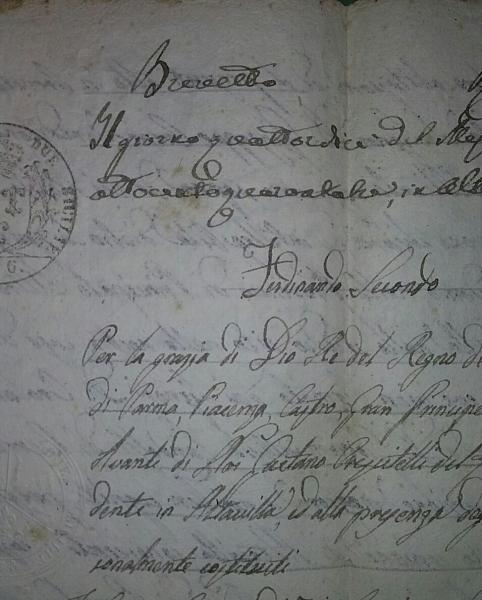 Brevetto
Il giorno quattordice del Me
ottocentoquarantatre, in Alta
Ferdinando Secondo
Per la grazia di Dio Re del Regno de
di Parma, Piacenza, Castro, Gran Principe
Avanti di Noi Gaetano del
dente in Altavilla, ed alla presenza de
sonalmente costituiti
DUE SICILIE